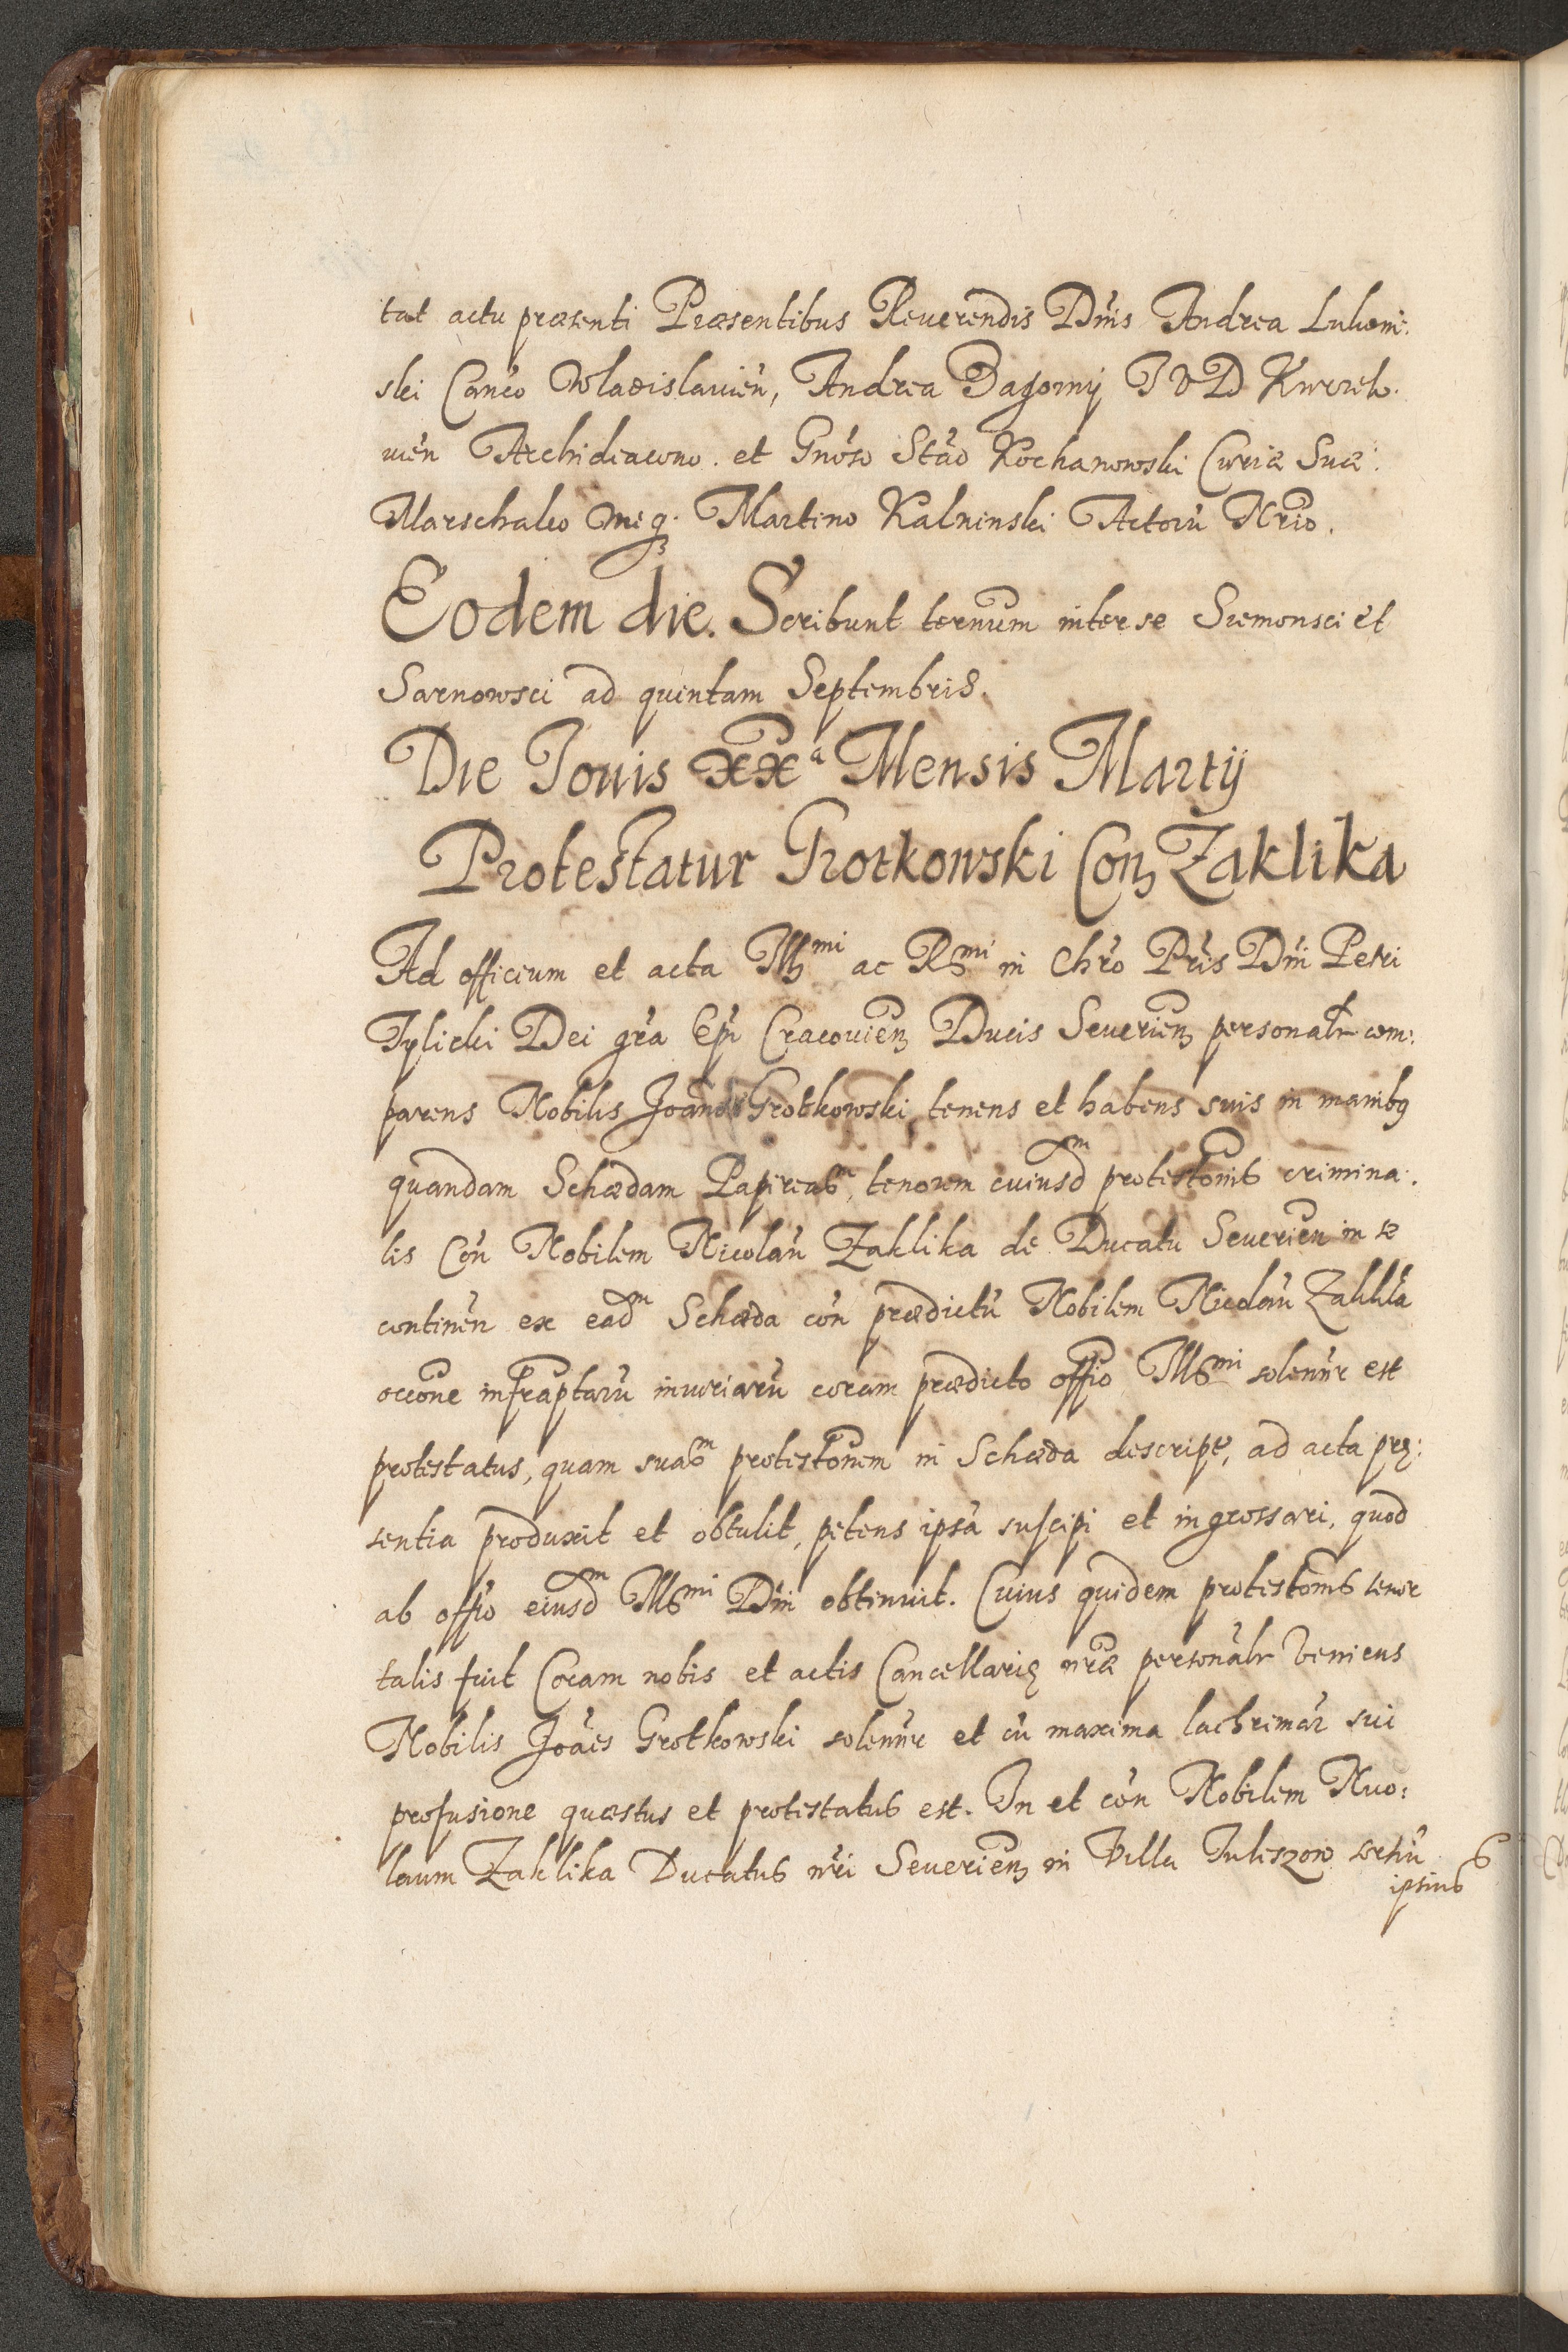 tat actu præsenti Præsentibus Reuerendis Dńis Andrea Lukom:
ski Canćo Wladislauień, Andrea Bagorny I V D Kurzelo:
uień Archideacono. et Gnóso Stáo Kochanowski Curiæ Suæ:
Marschalco meq. Martino Kalninski Actorú Nrio.
Eodem die. Scribunt ternum inter se Siemonsci et
Sarnowsci ad quintam Septembris.
Die Iouis XXª Mensis Martij
Protestatur Grotkowski Con Zaklika
Ad officium et acta Illmi ac Rsmi in Chro Pris Dńi Petri
Tylicki Dei gŕa Epi Cracouien Ducis Seuerien personalr com:
parens Nobilis Joannes Grotkowski, tenens et habens suis in manibq
quandam Schædam Papireasm, tenorem cuiusdm protestonis crimina:
lis Cón Nobilem Nicolaú Zaklika de Ducatu Seuerień in se
continéń ex eadm Schæda cón prædictú Nobilem Nicolaú Zaklika
occóne infraptarú iniuriarú coram prædicto offio Illsmi solennr est
protestatus, quam suasm protestonem in Schæda descript, ad acta præ:
sentia produxit et obtulit, petens ipsá suscipi et ingrossari, quod
ab offio eiusdm Illsmi Dńi obtinuit. Cuius quidem protestonis tenor
talis fuit Coram nobis et actis Cancellariæ nræ personalr veniens
Nobilis Joáes Grotkowski solennr et cú maxima lachrimar sui
profusione quæstus et protestatus est. In et cón Nobilem Nico:
laum Zaklika Ducatus nŕi Seuerien in Villa Tuliszow
ipsius